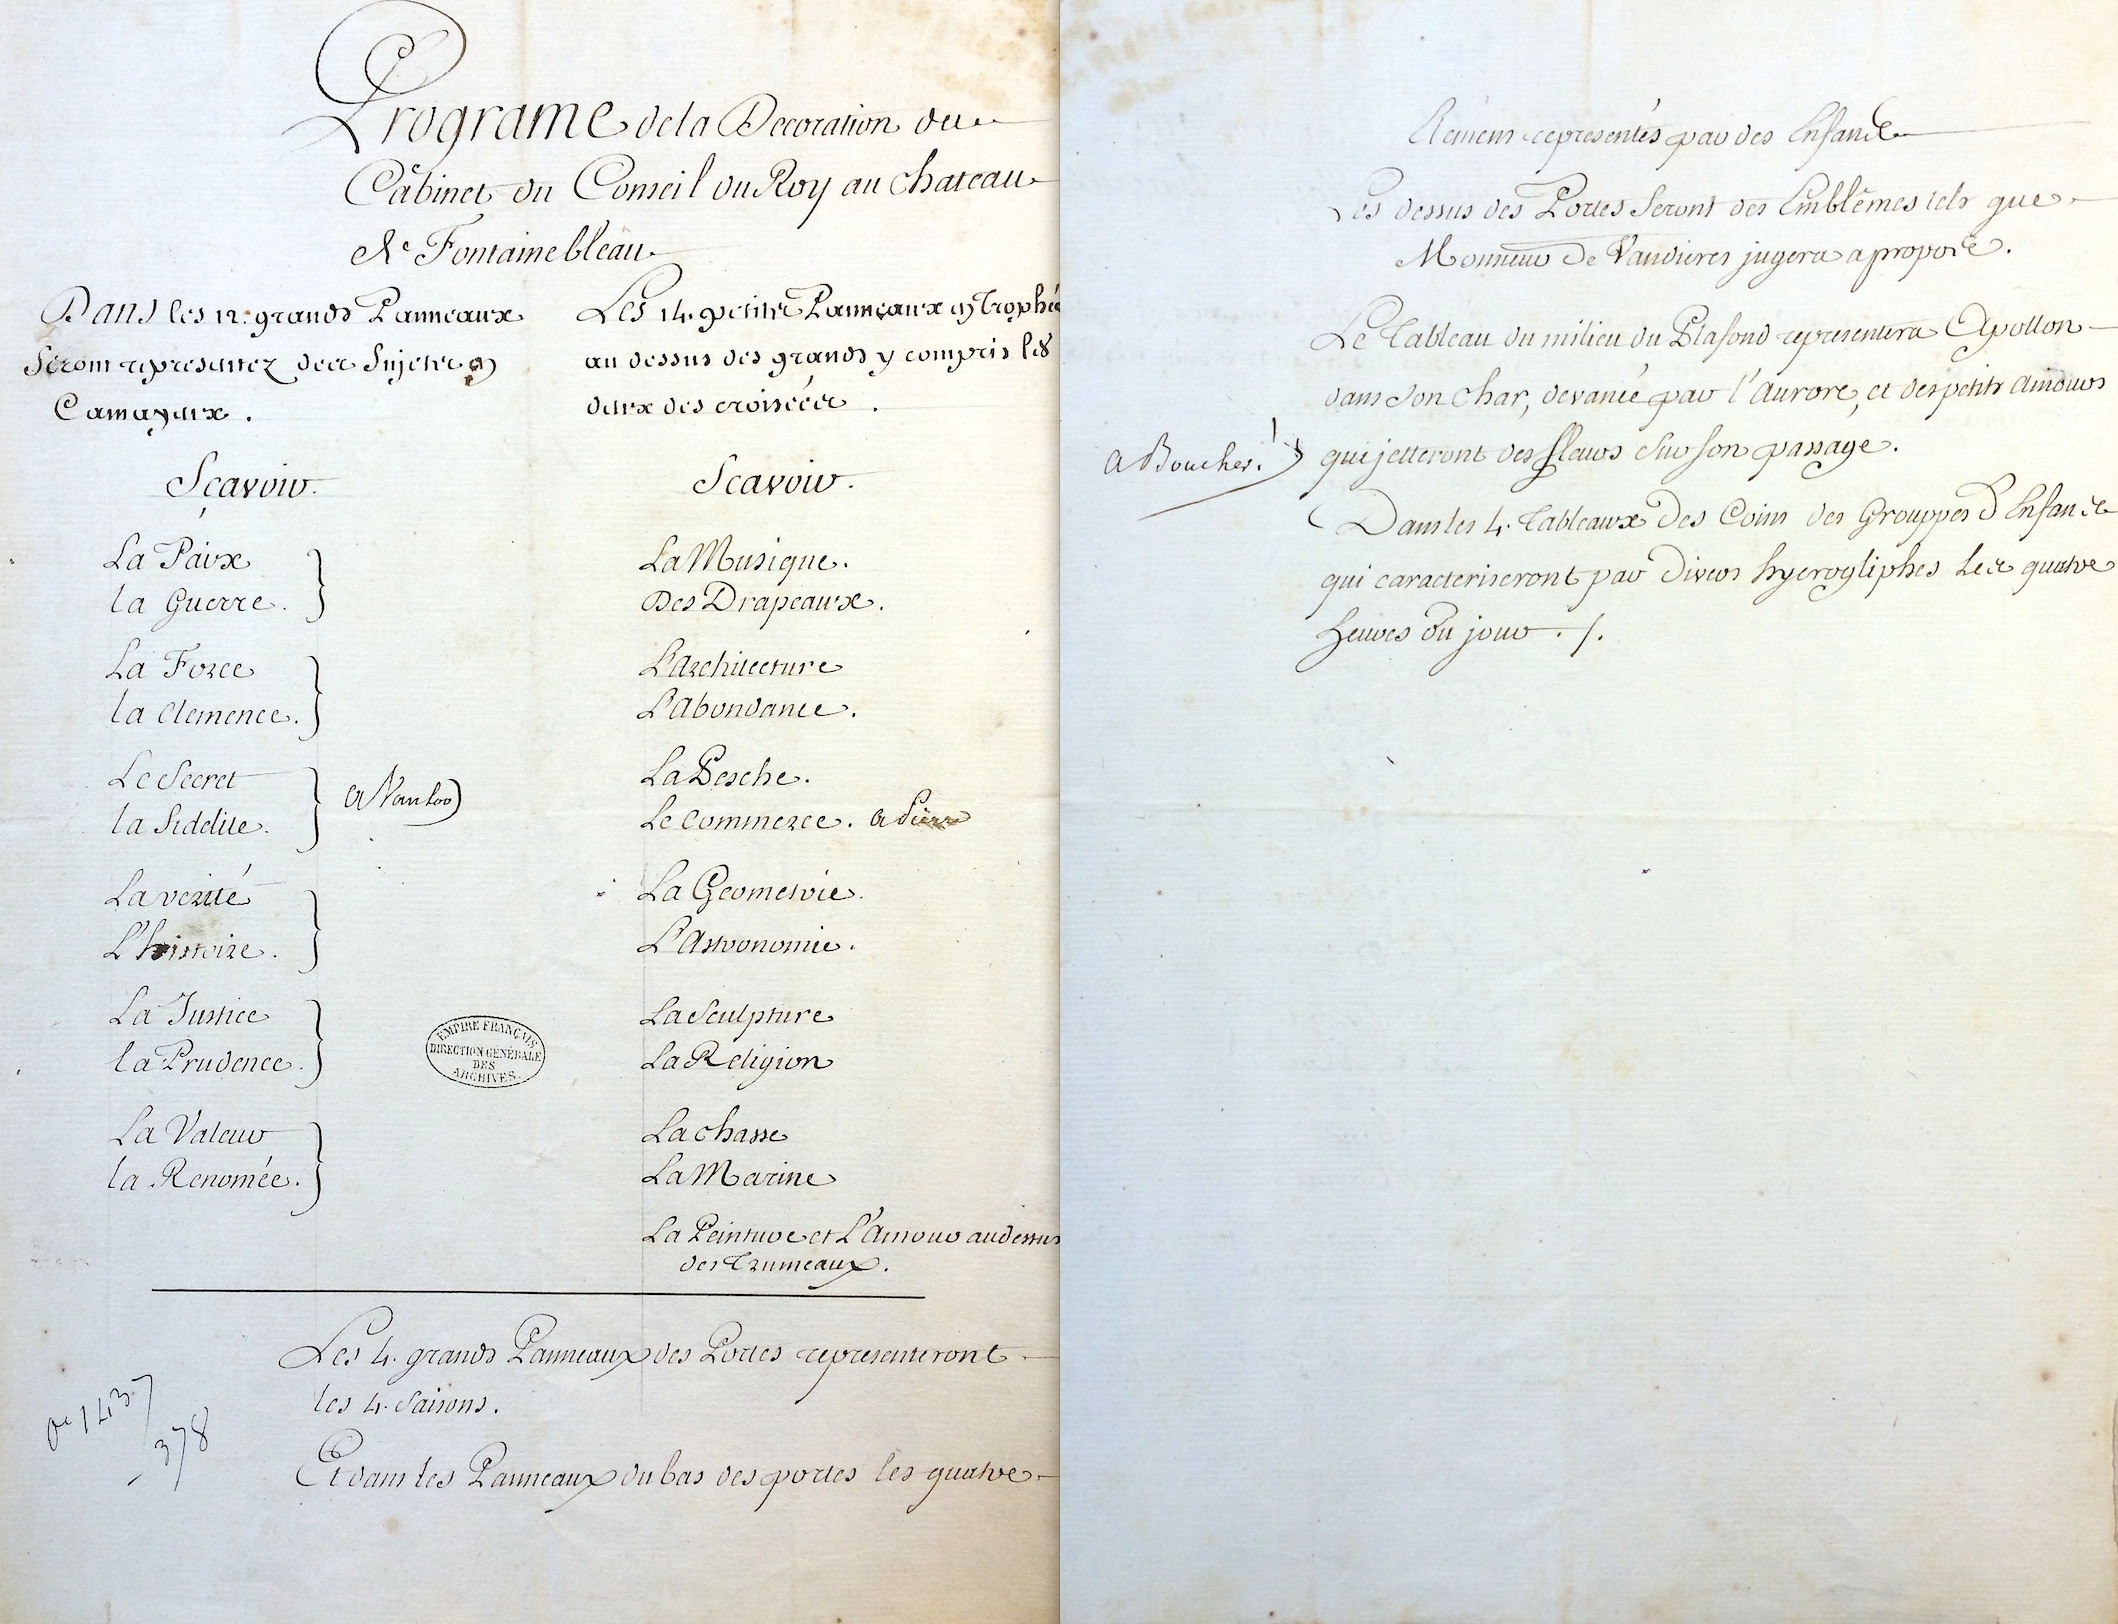 Programe de la Decoration du
Cabinet du Conseil du Roy au chateau
de Fontainebleau
Dans les 12. grands Panneaux
seront representez des Sujets en
Camayeux.
Scavoir.
La Paix
la Guerre.
La Force
la Clemence.
Le Secret
la fidelite.
a Vanloo
La verité
L'histoire.
La Justice
la Prudence.
La Valeur
la Renomée.
Les 14. petits Panneaux en Trophée
au dessus des grands y compris les
deux des croisées.
Scavoir.
La Musique.
Des Drapeaux.
L'Architecture
L'Abondance.
La Pesche.
Le Commerce. a Pierre
La Geometrie.
L'Astronomie.
La Sculpture
La Religion
La chasse
La Marine
La Peinture et L'Amour au dessus
des Trumeaux.
EMPIRE FRANÇAIS
DIRECTION GENÉRALE
DES
ARCHIVES.
Les 4. grands Panneaux des Portes representeront
les 4. Saisons.
Et dans les Panneaux du bas des portes les quatre
1437
378
Elémens representés par des Enfans
Les dessus des Portes Seront des Emblêmes tels que
Monsieur de Vandieres jugera apropos.
Le Tableau du milieu du Plafond representera Apollon
dans son char, devancé par l'Aurore, et des petits amours
a Boucher. qui jetteront des fleurs sur son passage.
Dans les 4. Tableaux des Coins des Grouppes d'Enfans
qui caracteriseront par divers hyerogliphes les quatre
heures du jour ./.